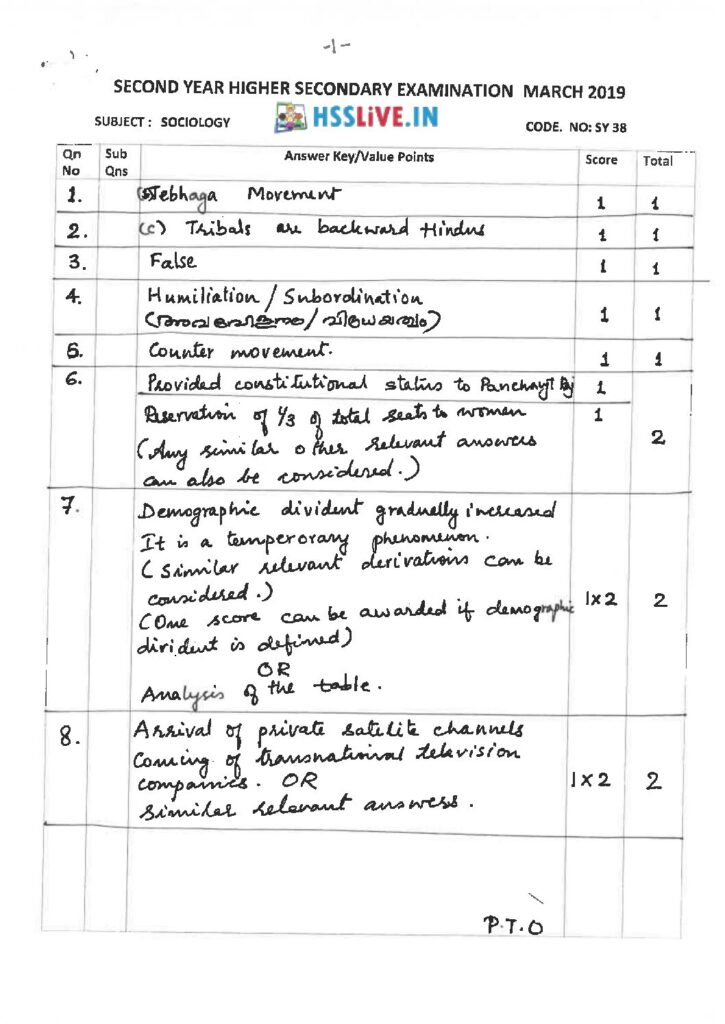 -1-
SECOND YEAR HIGHER SECONDARY EXAMINATION MARCH 2019
SUBJECT : SOCIOLOGY
HSSLiVE.IN
CODE. NO: SY 38
Qn No Sub Qns Answer Key/Value Points Score Total
1. Tebhaga Movement 1 1
2. (c) Tribals are backward Hindus 1 1
3. False 1 1
4. Humiliation / Subordination
1 1
5. Counter movement. 1 1
6. Provided constitutional status to Panchayt Raj 1
Reservation of 1/3 of total seats to women 1
(Any similar other relevant answers 2
can also be considered.)
7. Demographic divident gradually increased
It is a temperorary phenomenon.
(Similar relevant derivations can be
considered.) 1×2 2
(One score can be awarded if demographic
divident is defined)
OR
Analysis of the table.
8. Arrival of private satelite channels
Coming of transnational television
companies. OR 1×2 2
Similar relevant answers.
P.T.O